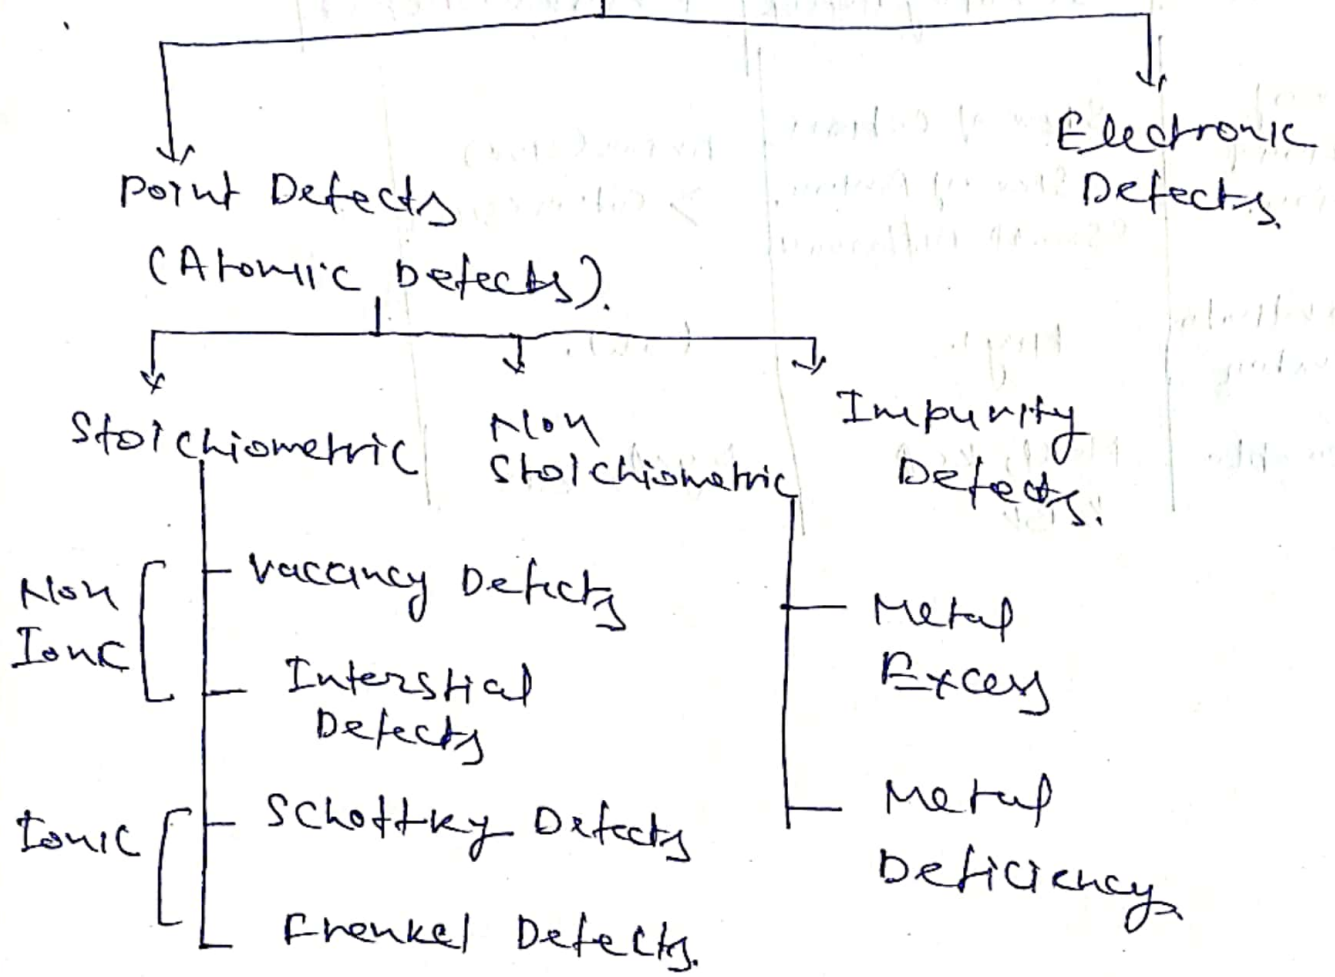 Electronic
Defects.
Point Defects
(Atomic Defects).
Stoichiometric
Non
Stoichiometric
Impurity
Defects.
Non
Ionic
Vacancy Defects
Interstial
Defects
Ionic
Schottky Defects
Frenkel Defects.
Metal
Excess
Metal
Deficiency